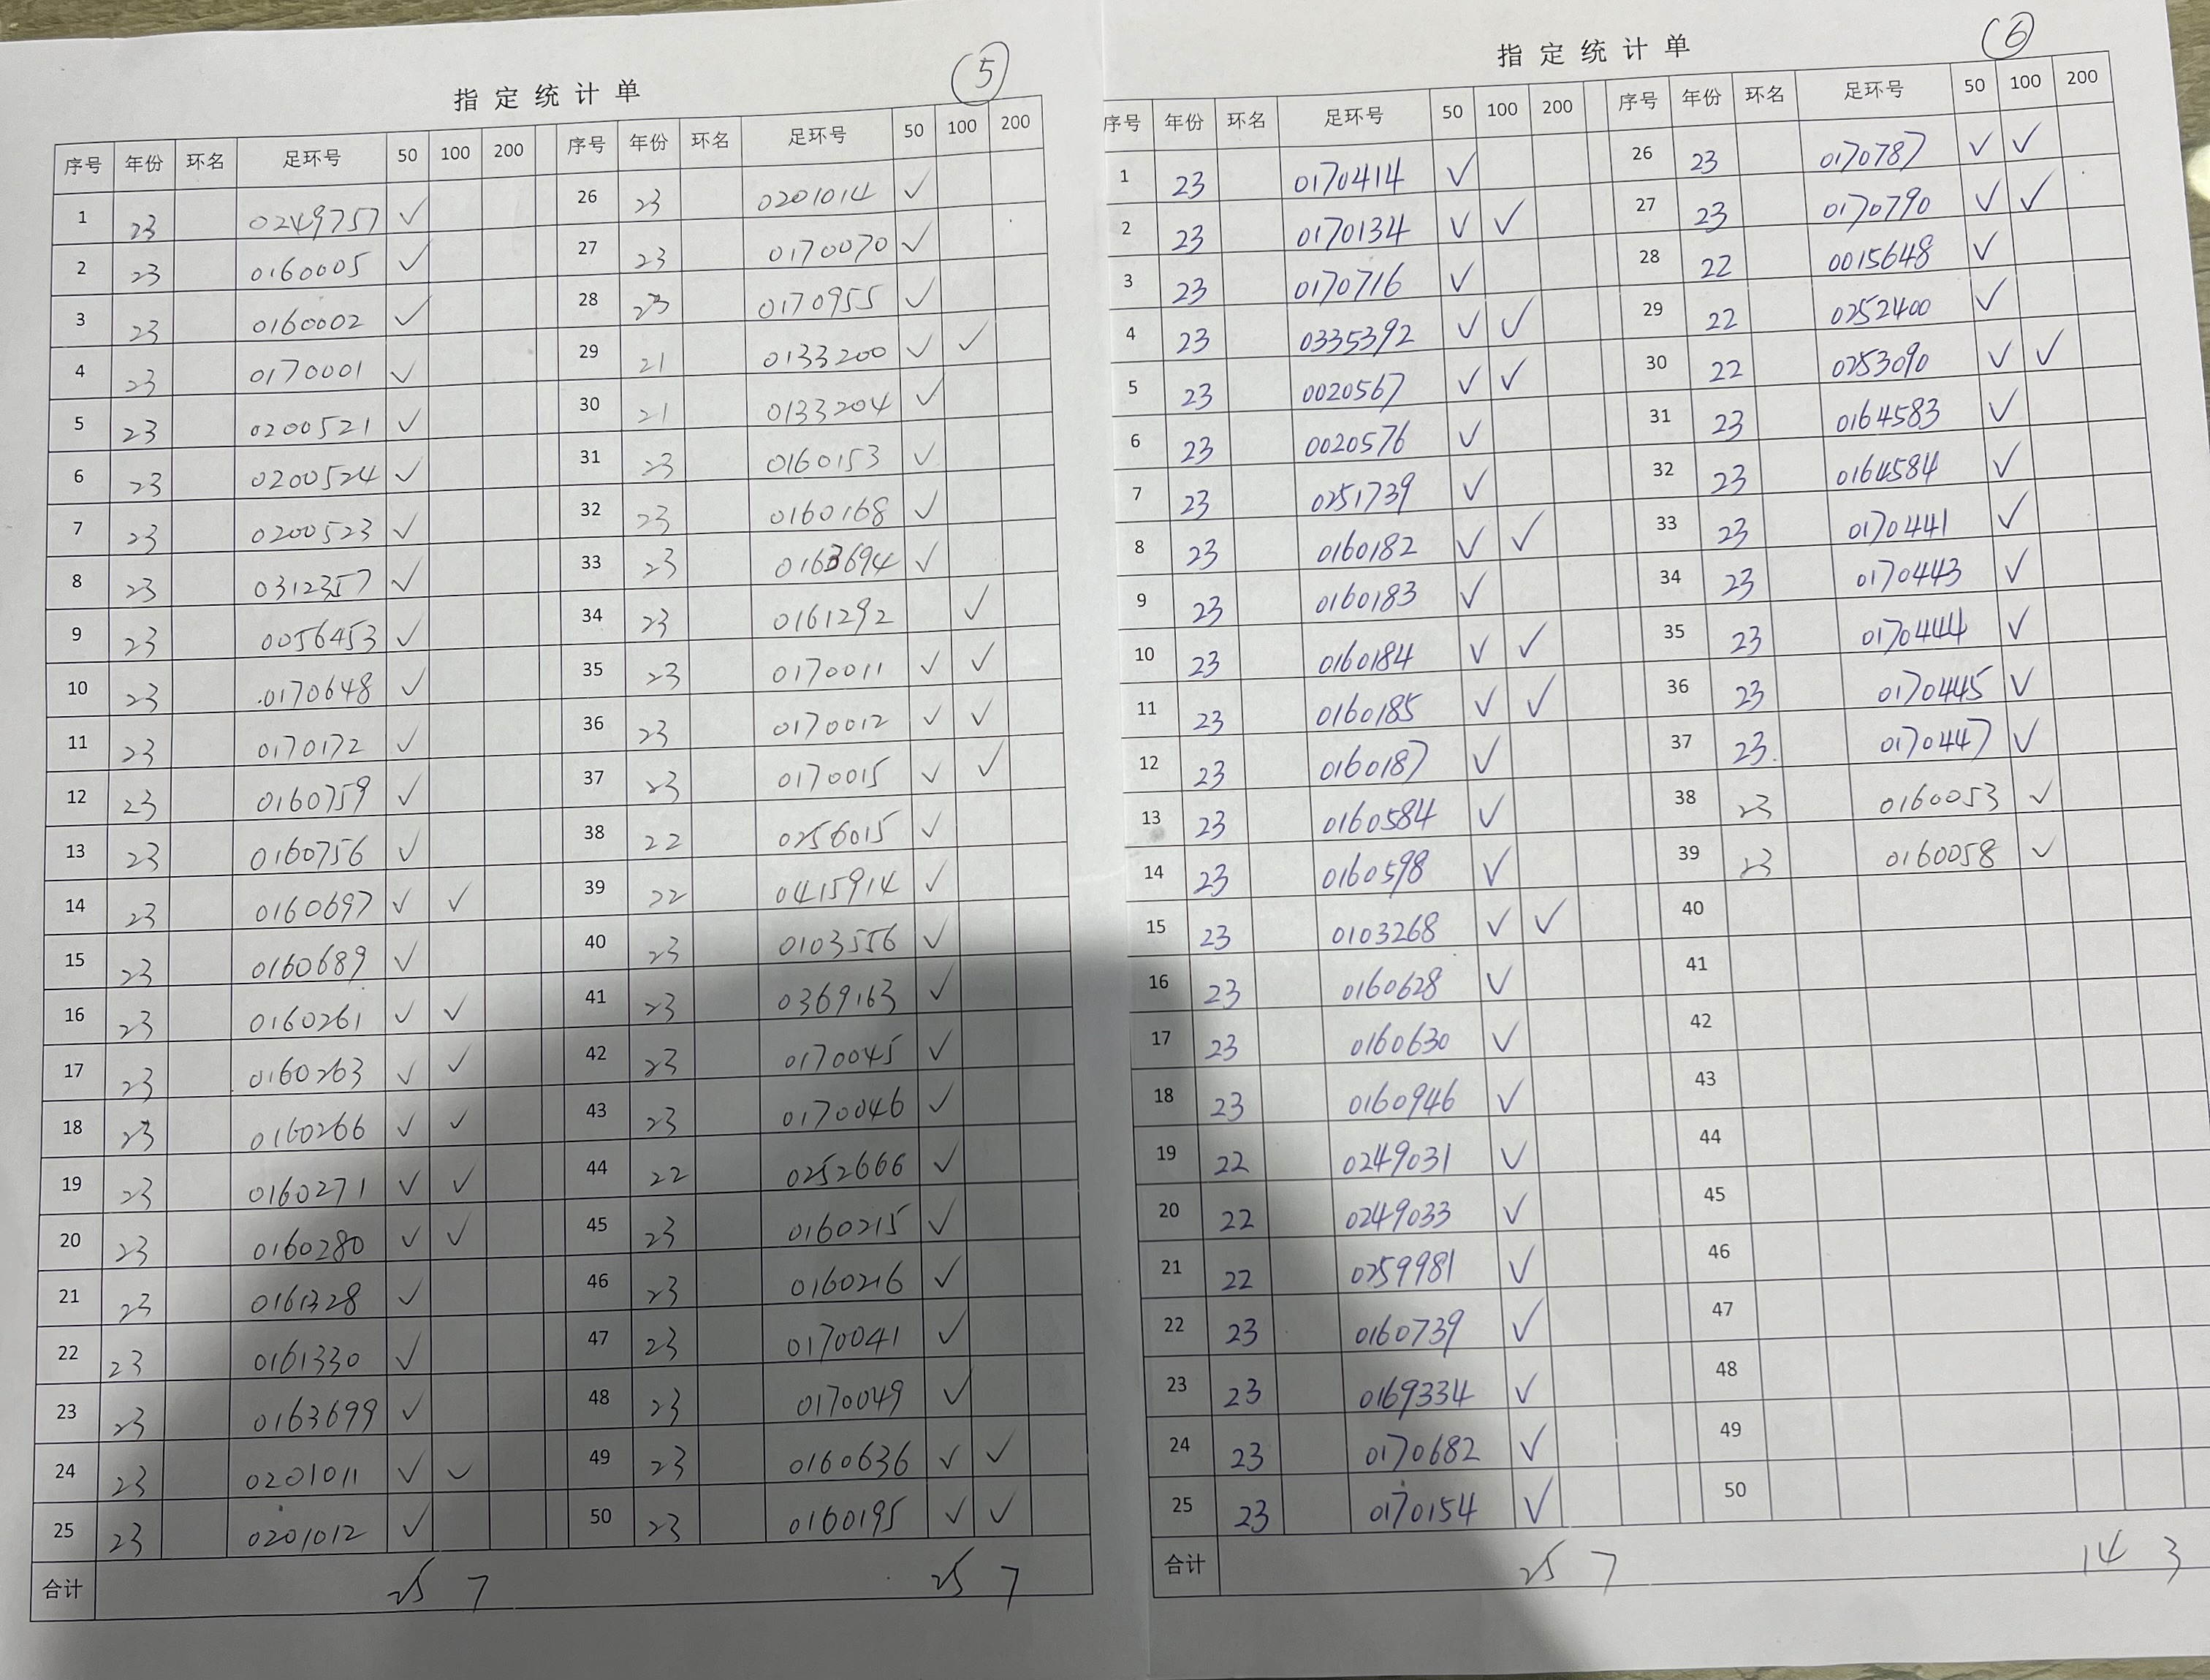 指定统计单 ⑤
序号 年份 环名 足环号 50 100 200 序号 年份 环名 足环号 50 100 200
1 23 0249757 ✓ 26 23 0201014 ✓
2 23 0160005 ✓ 27 23 0170070 ✓
3 23 0160002 ✓ 28 23 0170955 ✓
4 23 0170001 ✓ 29 21 0133200 ✓ ✓
5 23 0200521 ✓ 30 21 0133204 ✓
6 23 0200524 ✓ 31 23 0160153 ✓
7 23 0200523 ✓ 32 23 0160168 ✓
8 23 0312357 ✓ 33 23 0163694 ✓
9 23 0056453 ✓ 34 23 0161292 ✓
10 23 0170648 ✓ 35 23 0170011 ✓ ✓
11 23 0170172 ✓ 36 23 0170012 ✓ ✓
12 23 0160759 ✓ 37 23 0170015 ✓ ✓
13 23 0160756 ✓ 38 22 0256015 ✓
14 23 0160697 ✓ ✓ 39 22 0415914 ✓
15 23 0160689 ✓ 40 23 0103556 ✓
16 23 0160261 ✓ ✓ 41 23 0369163 ✓
17 23 0160263 ✓ ✓ 42 23 0170045 ✓
18 23 0160266 ✓ ✓ 43 23 0170046 ✓
19 23 0160271 ✓ ✓ 44 22 0252666 ✓
20 23 0160280 ✓ ✓ 45 23 0160215 ✓
21 23 0161328 ✓ 46 23 0160216 ✓
22 23 0161330 ✓ 47 23 0170041 ✓
23 23 0163699 ✓ 48 23 0170049 ✓
24 23 0201011 ✓ ✓ 49 23 0160636 ✓ ✓
25 23 0201012 ✓ 50 23 0160195 ✓ ✓
合计 25 7 25 7
指定统计单 ⑥
序号 年份 环名 足环号 50 100 200 序号 年份 环名 足环号 50 100 200
1 23 0170414 ✓ 26 23 0170787 ✓ ✓
2 23 0170134 ✓ ✓ 27 23 0170790 ✓ ✓
3 23 0170716 ✓ 28 22 0015648 ✓
4 23 0335392 ✓ ✓ 29 22 0252400 ✓
5 23 0020567 ✓ ✓ 30 22 0253090 ✓ ✓
6 23 0020576 ✓ 31 23 0164583 ✓
7 23 0251739 ✓ 32 23 0164584 ✓
8 23 0160182 ✓ ✓ 33 23 0170441 ✓
9 23 0160183 ✓ 34 23 0170443 ✓
10 23 0160184 ✓ ✓ 35 23 0170444 ✓
11 23 0160185 ✓ ✓ 36 23 0170445 ✓
12 23 0160187 ✓ 37 23 0170447 ✓
13 23 0160584 ✓ 38 23 0160053 ✓
14 23 0160598 ✓ 39 23 0160058 ✓
15 23 0103268 ✓ ✓ 40
16 23 0160628 ✓ 41
17 23 0160630 ✓ 42
18 23 0160946 ✓ 43
19 22 0249031 ✓ 44
20 22 0249033 ✓ 45
21 22 0259981 ✓ 46
22 23 0160739 ✓ 47
23 23 0169334 ✓ 48
24 23 0170682 ✓ 49
25 23 0170154 ✓ 50
合计 25 7 14 3